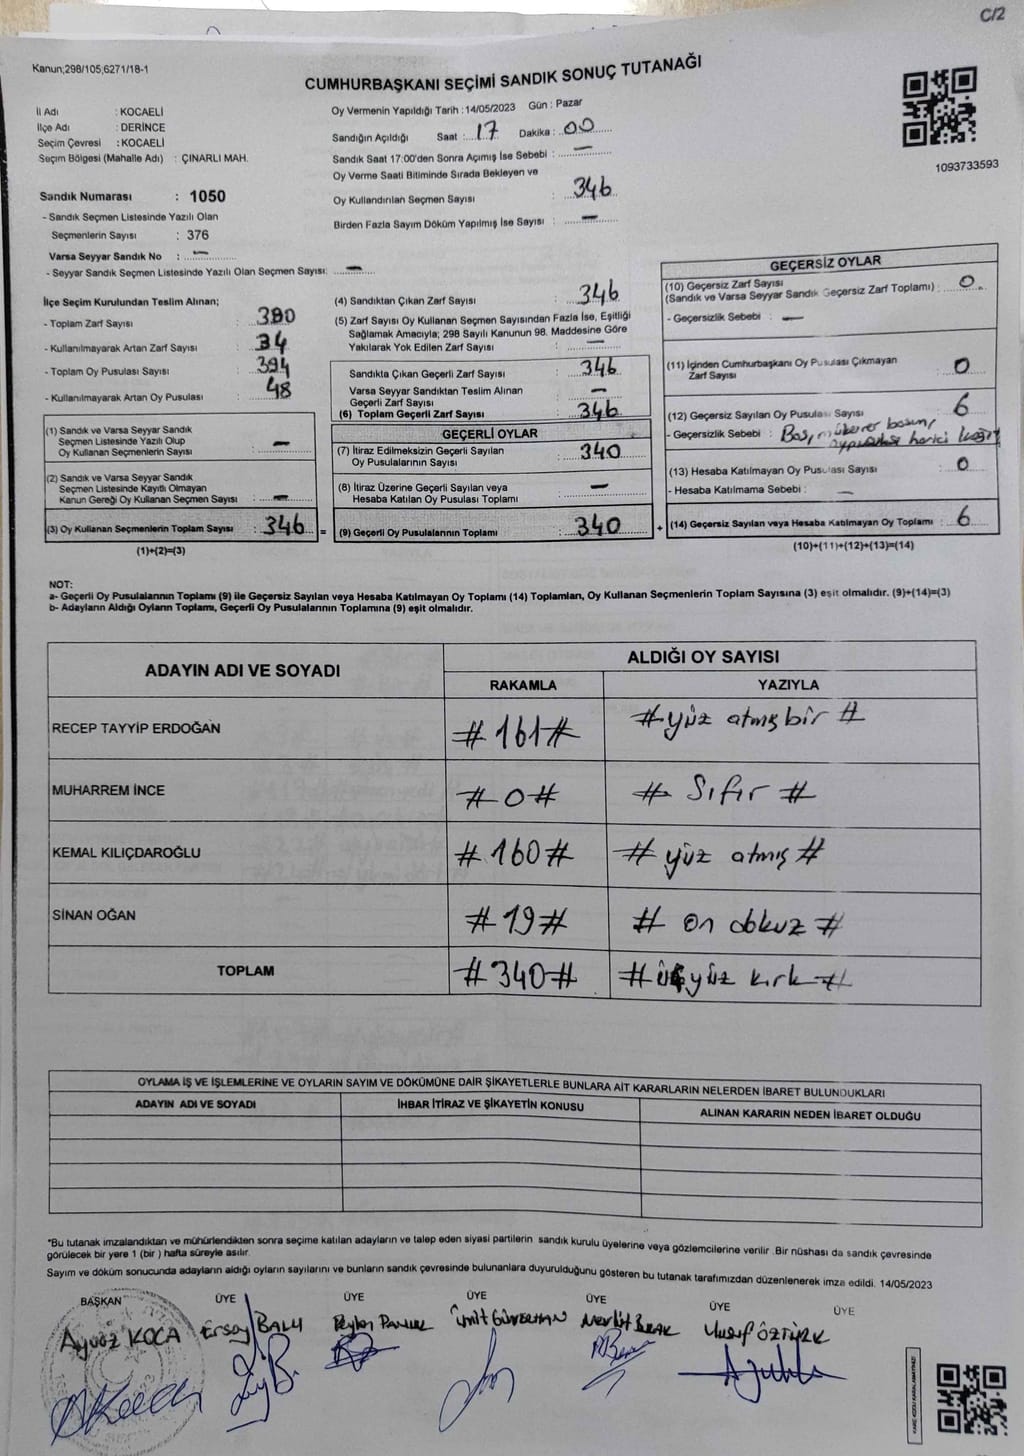 C/2
Kanun;298/105;6271/18-1
CUMHURBAŞKANI SEÇİMİ SANDIK SONUÇ TUTANAĞI
İl Adı : KOCAELİ
İlçe Adı : DERİNCE
Seçim Çevresi : KOCAELİ
Seçim Bölgesi (Mahalle Adı) : ÇINARLI MAH.
Oy Vermenin Yapıldığı Tarih : 14/05/2023 Gün : Pazar
Sandığın Açıldığı Saat : 17 Dakika : 00
Sandık Saat 17:00'den Sonra Açımış İse Sebebi : —
Oy Verme Saati Bitiminde Sırada Bekleyen ve
Oy Kullandırılan Seçmen Sayısı : 346
Birden Fazla Sayım Döküm Yapılmış İse Sayısı : —
1093733593
Sandık Numarası : 1050
- Sandık Seçmen Listesinde Yazılı Olan
Seçmenlerin Sayısı : 376
Varsa Seyyar Sandık No : —
- Seyyar Sandık Seçmen Listesinde Yazılı Olan Seçmen Sayısı: —
İlçe Seçim Kurulundan Teslim Alınan;
- Toplam Zarf Sayısı : 380
- Kullanılmayarak Artan Zarf Sayısı : 34
- Toplam Oy Pusulası Sayısı : 394
- Kullanılmayarak Artan Oy Pusulası : 48
(1) Sandık ve Varsa Seyyar Sandık
Seçmen Listesinde Yazılı Olup
Oy Kullanan Seçmenlerin Sayısı : —
(2) Sandık ve Varsa Seyyar Sandık
Seçmen Listesinde Kayıtlı Olmayan
Kanun Gereği Oy Kullanan Seçmen Sayısı : —
(3) Oy Kullanan Seçmenlerin Toplam Sayısı : 346 =
(1)+(2)=(3)
(4) Sandıktan Çıkan Zarf Sayısı : 346
(5) Zarf Sayısı Oy Kullanan Seçmen Sayısından Fazla İse, Eşitliği
Sağlamak Amacıyla; 298 Sayılı Kanunun 98. Maddesine Göre
Yakılarak Yok Edilen Zarf Sayısı : —
Sandıkta Çıkan Geçerli Zarf Sayısı : 346
Varsa Seyyar Sandıktan Teslim Alınan
Geçerli Zarf Sayısı : —
(6) Toplam Geçerli Zarf Sayısı : 346
GEÇERLİ OYLAR
(7) İtiraz Edilmeksizin Geçerli Sayılan
Oy Pusulalarının Sayısı : 340
(8) İtiraz Üzerine Geçerli Sayılan veya
Hesaba Katılan Oy Pusulası Toplamı : —
(9) Geçerli Oy Pusulalarının Toplamı : 340 +
GEÇERSİZ OYLAR
(10) Geçersiz Zarf Sayısı
(Sandık ve Varsa Seyyar Sandık Geçersiz Zarf Toplamı) : 0
- Geçersizlik Sebebi : —
(11) İçinden Cumhurbaşkanı Oy Pusulası Çıkmayan
Zarf Sayısı : 0
(12) Geçersiz Sayılan Oy Pusulası Sayısı : 6
- Geçersizlik Sebebi : Boş, mükerrer basım,
oy pusulası harici kağıt
(13) Hesaba Katılmayan Oy Pusulası Sayısı : 0
- Hesaba Katılmama Sebebi : —
(14) Geçersiz Sayılan veya Hesaba Katılmayan Oy Toplamı : 6
(10)+(11)+(12)+(13)=(14)
NOT:
a- Geçerli Oy Pusulalarının Toplamı (9) ile Geçersiz Sayılan veya Hesaba Katılmayan Oy Toplamı (14) Toplamları, Oy Kullanan Seçmenlerin Toplam Sayısına (3) eşit olmalıdır. (9)+(14)=(3)
b- Adayların Aldığı Oyların Toplamı, Geçerli Oy Pusulalarının Toplamına (9) eşit olmalıdır.
ADAYIN ADI VE SOYADI
ALDIĞI OY SAYISI
RAKAMLA YAZIYLA
RECEP TAYYİP ERDOĞAN # 161 # # yüz atmış bir #
MUHARREM İNCE # 0 # # Sıfır #
KEMAL KILIÇDAROĞLU # 160 # # yüz atmış #
SİNAN OĞAN # 19 # # on dokuz #
TOPLAM # 340 # # üçyüz kırk #
OYLAMA İŞ VE İŞLEMLERİNE VE OYLARIN SAYIM VE DÖKÜMÜNE DAİR ŞİKAYETLERLE BUNLARA AİT KARARLARIN NELERDEN İBARET BULUNDUKLARI
ADAYIN ADI VE SOYADI İHBAR İTİRAZ VE ŞİKAYETİN KONUSU ALINAN KARARIN NEDEN İBARET OLDUĞU
*Bu tutanak imzalandıktan ve mühürlendikten sonra seçime katılan adayların ve talep eden siyasi partilerin sandık kurulu üyelerine veya gözlemcilerine verilir .Bir nüshası da sandık çevresinde
görülecek bir yere 1 (bir ) hafta süreyle asılır.
Sayım ve döküm sonucunda adayların aldığı oyların sayılarını ve bunların sandık çevresinde bulunanlara duyurulduğunu gösteren bu tutanak tarafımızdan düzenlenerek imza edildi. 14/05/2023
BAŞKAN ÜYE ÜYE ÜYE ÜYE ÜYE ÜYE
Ayvaz KOCA Ersoy BALLI Ümit GÜVERHAN Yusuf ÖZTÜRK